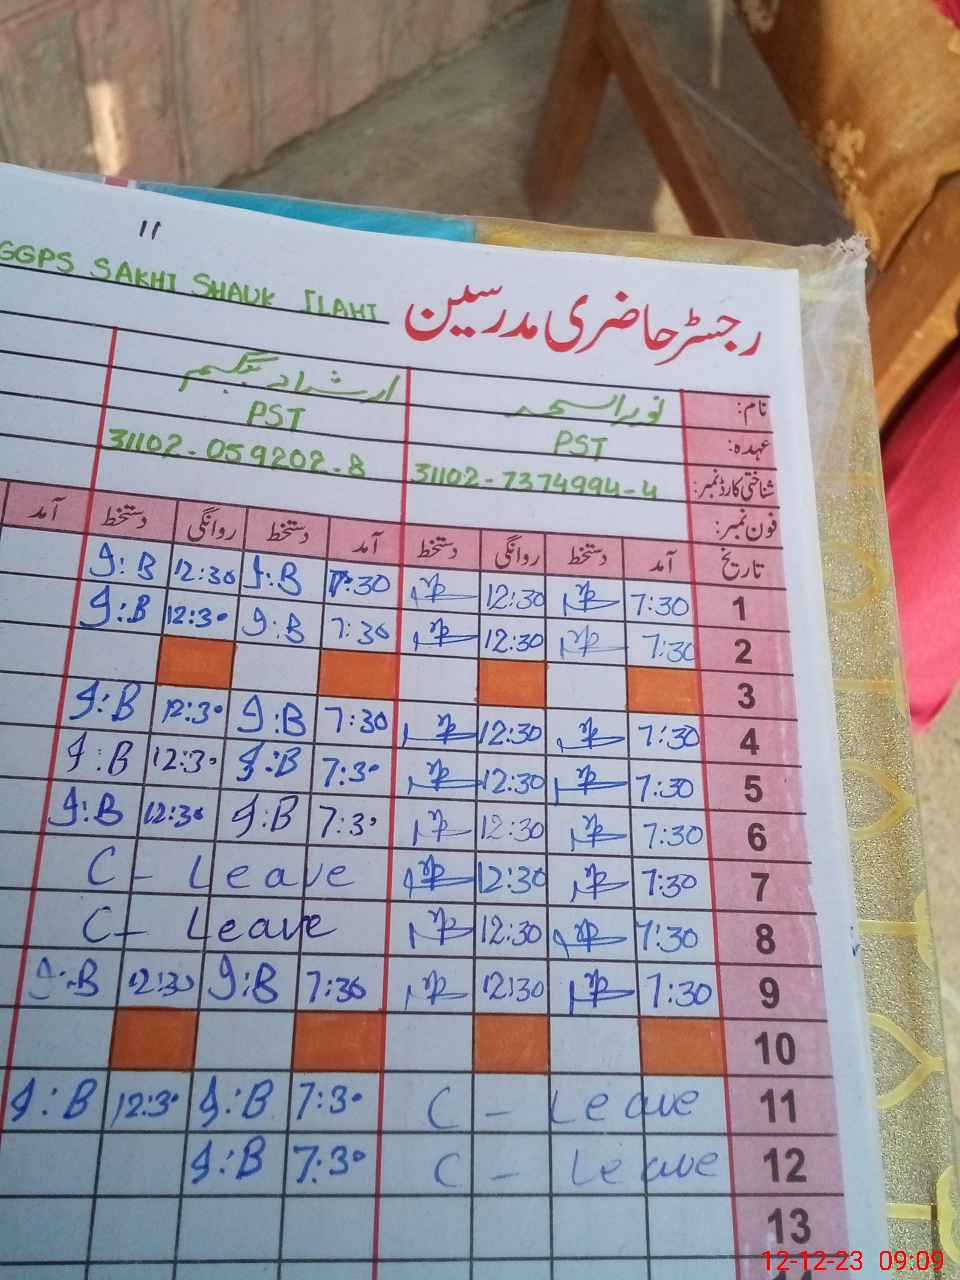 11
GGPS SAKHI SHAUK ILAHI
رجسٹر حاضری مدرسین
نام: نورالسحر ارشاد بیگم
عہدہ: PST PST
شناختی کارڈ نمبر: 31102-7374994-4 31102-059202-8
فون نمبر:
تاریخ آمد دستخط روانگی دستخط آمد دستخط روانگی دستخط آمد
1 7:30 12:30 7:30 I:B 12:30 I:B
2 7:30 12:30 7:30 I:B 12:30 I:B
3
4 7:30 12:30 7:30 I:B 12:30 I:B
5 7:30 12:30 7:30 I:B 12:30 I:B
6 7:30 12:30 7:30 I:B 12:30 I:B
7 7:30 12:30 C - Leave
8 7:30 12:30 C - Leave
9 7:30 12:30 7:30 I:B 12:30 I:B
10
11 C - Leave 7:30 I:B 12:30 I:B
12 C - Leave 7:30 I:B
13
12-12-23 09:09